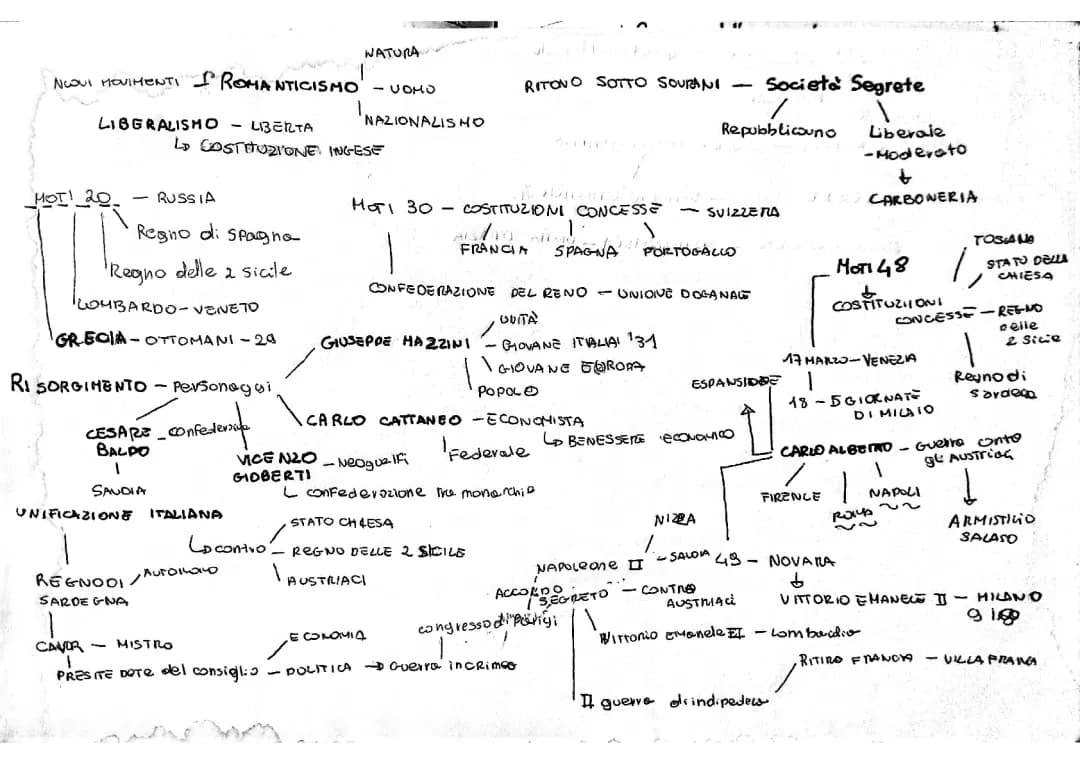 NATURA
NUOVI MOVIMENTI
ROMANTICISMO - UOMO
NAZIONALISMO
LIBERALISMO - LIBERTA
COSTITUZIONE INGESE
RITONO SOTTO SOURANI - Società Segrete
Repubblicano
Liberale
-Moderato
CARBONERIA
MOTI 20 - RUSSIA
Regno di Spagna
Regno delle 2 sicile
LOMBARDO-VENETO
GRECIA - OTTOMANI - 29
MOTI 30 - COSTITUZIONI CONCESSE - SVIZZERA
FRANCIA SPAGNA PORTOGALLO
CONFEDERAZIONE DEL RENO - UNIONE DOGANALE
MOTI 48
COSTITUZIONI
CONCESSE - REGNO
delle
2 Sicie
TOSCANO
STATO DELLA
CHIESA
Reyno di
Sardegn
17 MARZO - VENEZIA
18 - 5 GIORNATE
DI MILAIO
RISORGIMENTO - Personaggi
GIUSEPPE MAZZINI - GIOVANE ITALIA '31
UNITÀ
GIOVANE EUROPA
POPOLO
CARLO CATTANEO - ECONOMISTA
Federale
BENESSERE economico
CESARE - confederale
BALDO
SAVOIA
VICENZO - Neoguelfi
GIOBERTI
confederazione tra monarchie
ESPANSIONE
CARLO ALBERTO - Guerra conto
gli AUSTRIACI
FIRENCE
ROMA
NAPOLI
ARMISTICIO
SALASO
UNIFICAZIONE ITALIANA
contro - REGNO DELLE 2 SICILE
STATO CHIESA
AUSTRIACI
REGNO DI / AUTONOMO
SARDEGNA
CAVOR - MISTRO
PRESITE DOTE del consiglio - POLITICA → Guerra in crimea
ECONOMIA
congresso di Parigi
NIZZA
NAPOLEONE II - SAVOIA
ACCORDO
SEGRETO - CONTRO
AUSTRIACI
Vittorio Emanele II - Lombardia
49 - NOVARA
VITTORIO EMANELE II - MILANO
II guerra di indipedeza
RITIRO FRANCIA - VILLAFRANA